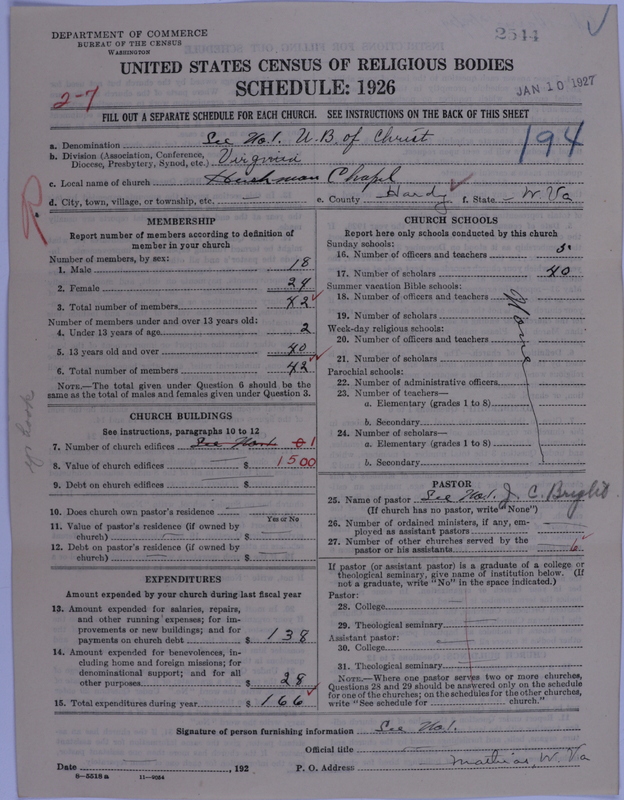 DEPARTMENT OF COMMERCE
BUREAU OF THE CENSUS
WASHINGTON
2544
JAN 10 1927
UNITED STATES CENSUS OF RELIGIOUS BODIES
SCHEDULE: 1926
2-7
FILL OUT A SEPARATE SCHEDULE FOR EACH CHURCH. SEE INSTRUCTIONS ON THE BACK OF THIS SHEET
194
a. Denomination See No. 1. U.B. of Christ
b. Division (Association, Conference, Diocese, Presbytery, Synod, etc.) Virginia
c. Local name of church Chapel
d. City, town, village, or township, etc. — e. County Hardy f. State W. Va
MEMBERSHIP
Report number of members according to definition of
member in your church
Number of members, by sex:
1. Male 18
2. Female 24
3. Total number of members 42
Number of members under and over 13 years old:
4. Under 13 years of age 2
5. 13 years old and over 40
6. Total number of members 42
NOTE.—The total given under Question 6 should be
same as the total of males and females given under Question 3.
CHURCH BUILDINGS
See instructions, paragraphs 10 to 12
7. Number of church edifices 1
8. Value of church edifices $ 1500
9. Debt on church edifices — $ —
10. Does church own pastor's residence —
Yes or No
11. Value of pastor's residence (if owned by
church) — $ —
12. Debt on pastor's residence (if owned by
church) — $ —
EXPENDITURES
Amount expended by your church during last fiscal year
13. Amount expended for salaries, repairs,
and other running expenses; for im-
provements or new buildings; and for
payments on church debt $ 138
14. Amount expended for benevolences, in-
cluding home and foreign missions; for
denominational support; and for all
other purposes $ 28
15. Total expenditures during year $ 166
CHURCH SCHOOLS
Report here only schools conducted by this church
Sunday schools:
16. Number of officers and teachers 5
17. Number of scholars 40
Summer vacation Bible schools:
18. Number of officers and teachers
19. Number of scholars
None
Week-day religious schools:
20. Number of officers and teachers
21. Number of scholars
Parochial schools:
22. Number of administrative officers
23. Number of teachers—
a. Elementary (grades 1 to 8)
b. Secondary
24. Number of scholars—
a. Elementary (grades 1 to 8)
b. Secondary
PASTOR
25. Name of pastor See No. 1. J. C.
(If church has no pastor, write "None")
26. Number of ordained ministers, if any, em-
ployed as assistant pastors —
27. Number of other churches served by the
pastor or his assistants 6
If pastor (or assistant pastor) is a graduate of a college or
theological seminary, give name of institution below. (If
not a graduate, write "No" in the space indicated.)
Pastor:
28. College
29. Theological seminary
Assistant pastor:
30. College
31. Theological seminary
NOTE.—Where one pastor serves two or more churches,
Questions 28 and 29 should be answered only on the schedule
for one of the churches; on the schedules for the other churches,
write "See schedule for church."
Signature of person furnishing information See No. 1.
Official title —
Date , 192 P. O. Address Mathias, W. Va
8-5518a 11-9054